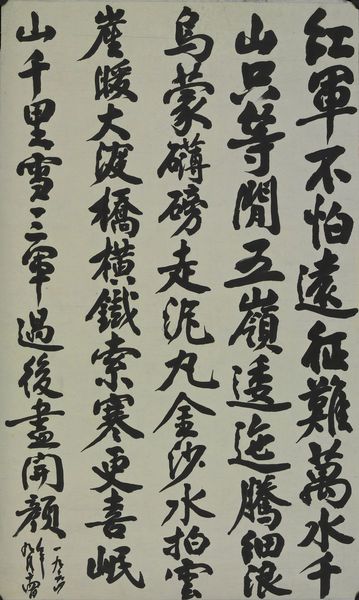 紅軍不怕遠征難萬水千
山只等閒五嶺逶迤騰細浪
烏蒙礴磅走泥丸金沙水拍雲
崖暖大渡橋橫鐵索寒更喜岷
山千里雪三軍過後盡開顏